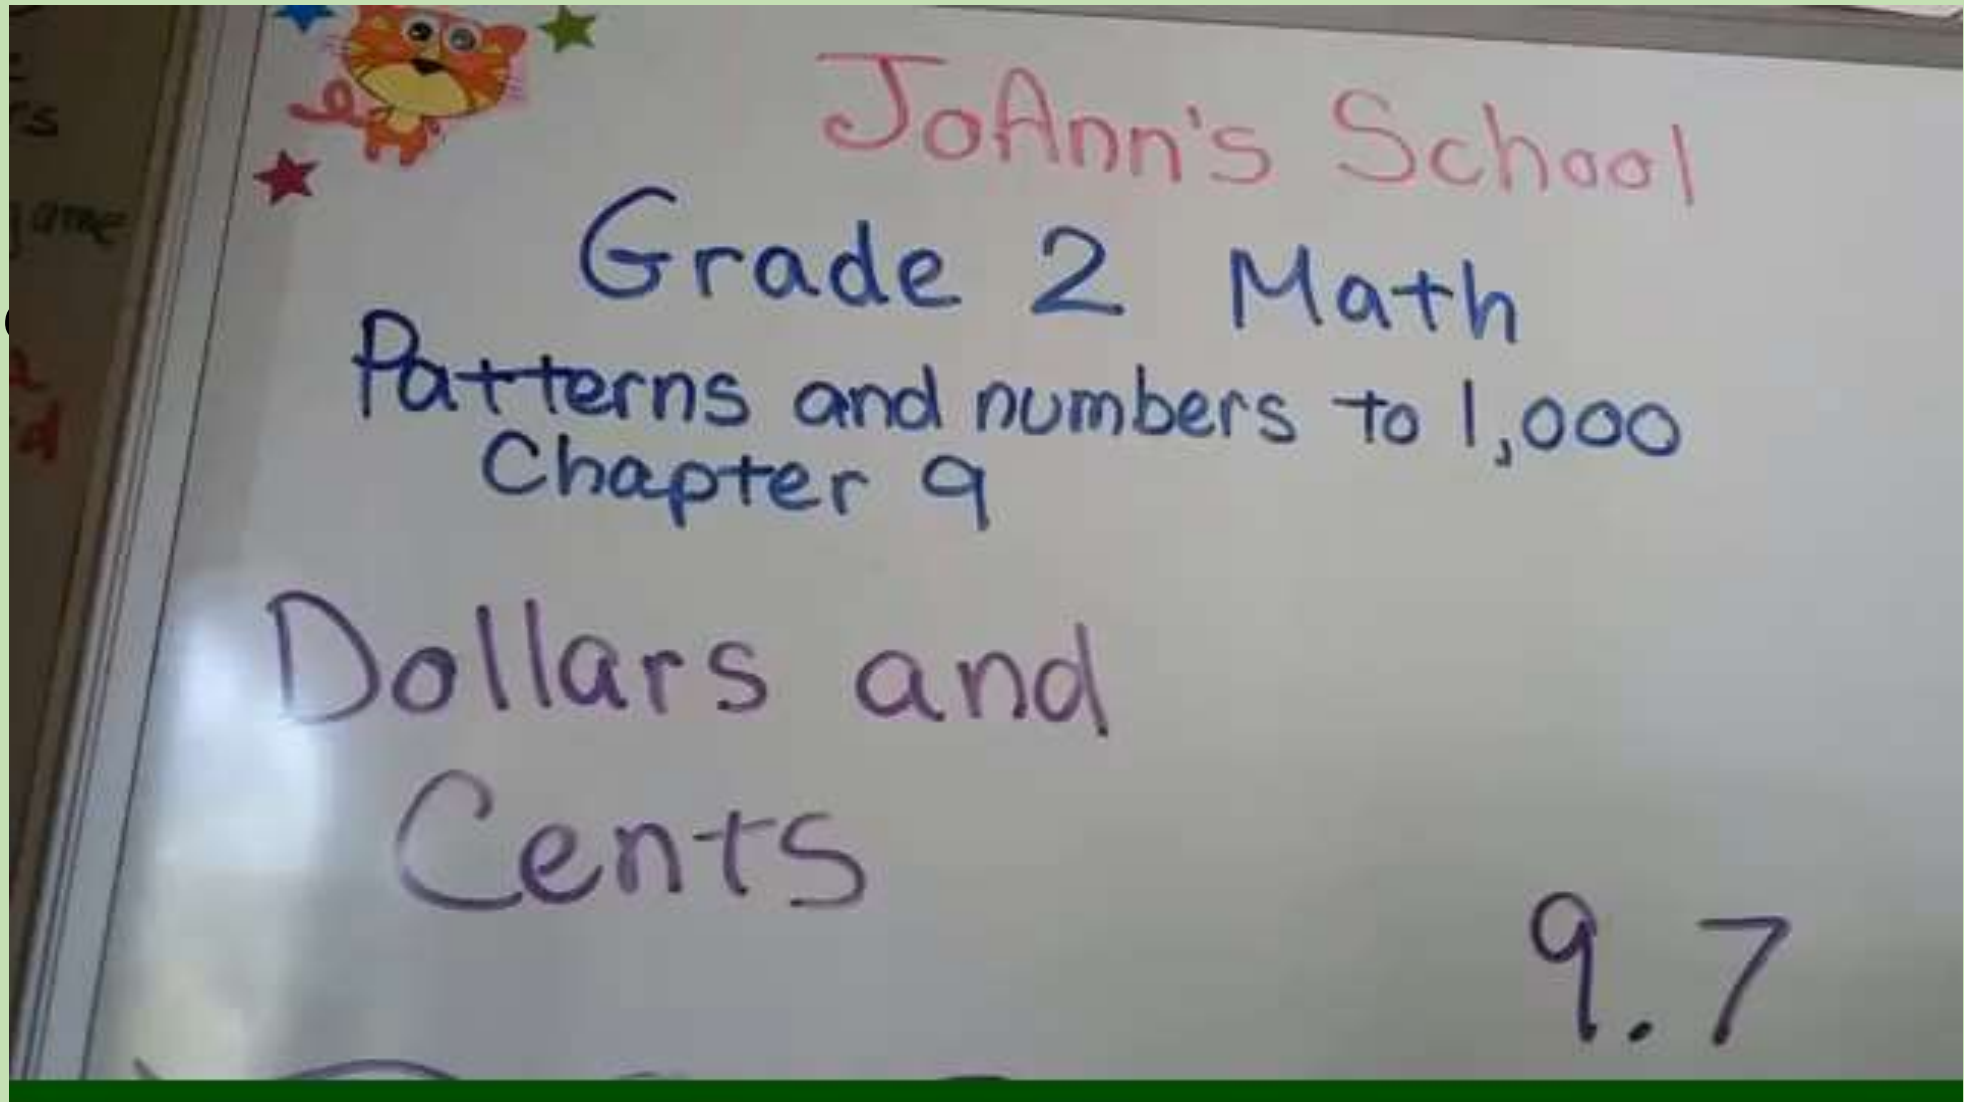 JoAnn's School
Grade 2 Math
Patterns and numbers to 1,000
Chapter 9
Dollars and
Cents
9.7